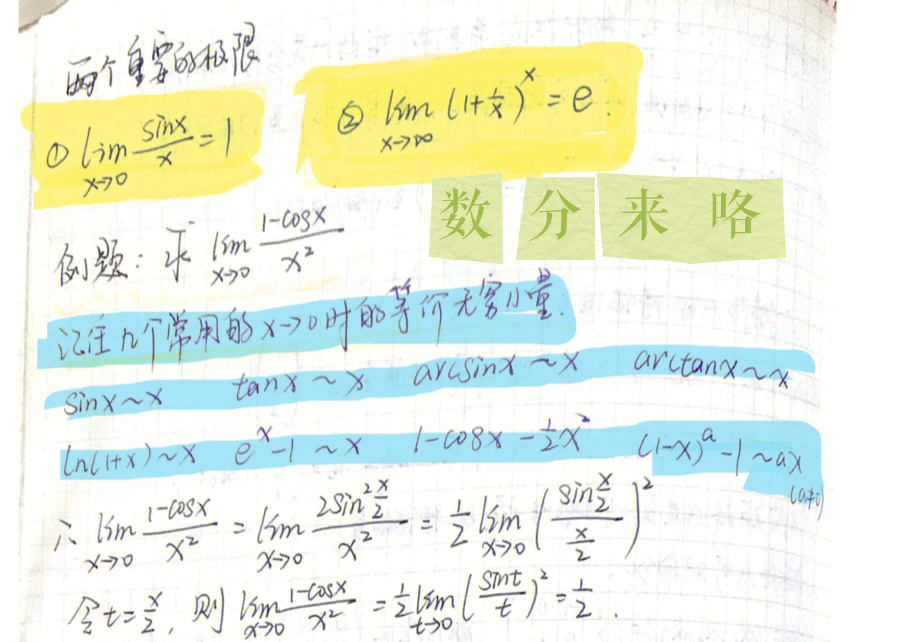 两个重要的极限
① lim x→0 sinx/x = 1
② lim x→∞ (1+1/x)^x = e.
数 分 来 咯
例题: 求 lim x→0 (1-cosx)/x²
记住几个常用的x→0时的等价无穷小量.
sinx~x tanx~x arcsinx~x arctanx~x
ln(1+x)~x e^x-1~x 1-cosx-½x² (1-x)^a-1~ax
(a≠0)
∴ lim x→0 (1-cosx)/x² = lim x→0 (2sin² x/2)/x² = ½ lim x→0 (sin x/2 / x/2)²
令t=x/2, 则 lim x→0 (1-cosx)/x² = ½ lim t→0 (sint/t)² = ½.